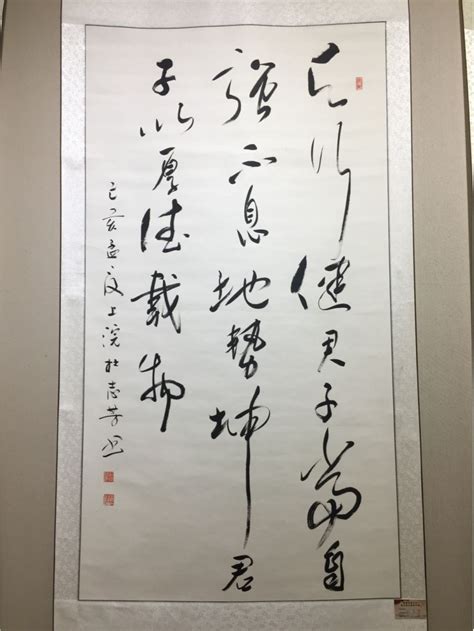 天行健君子当自
强不息地势坤君
子以厚德载物
己亥孟夏上浣杜志芳书